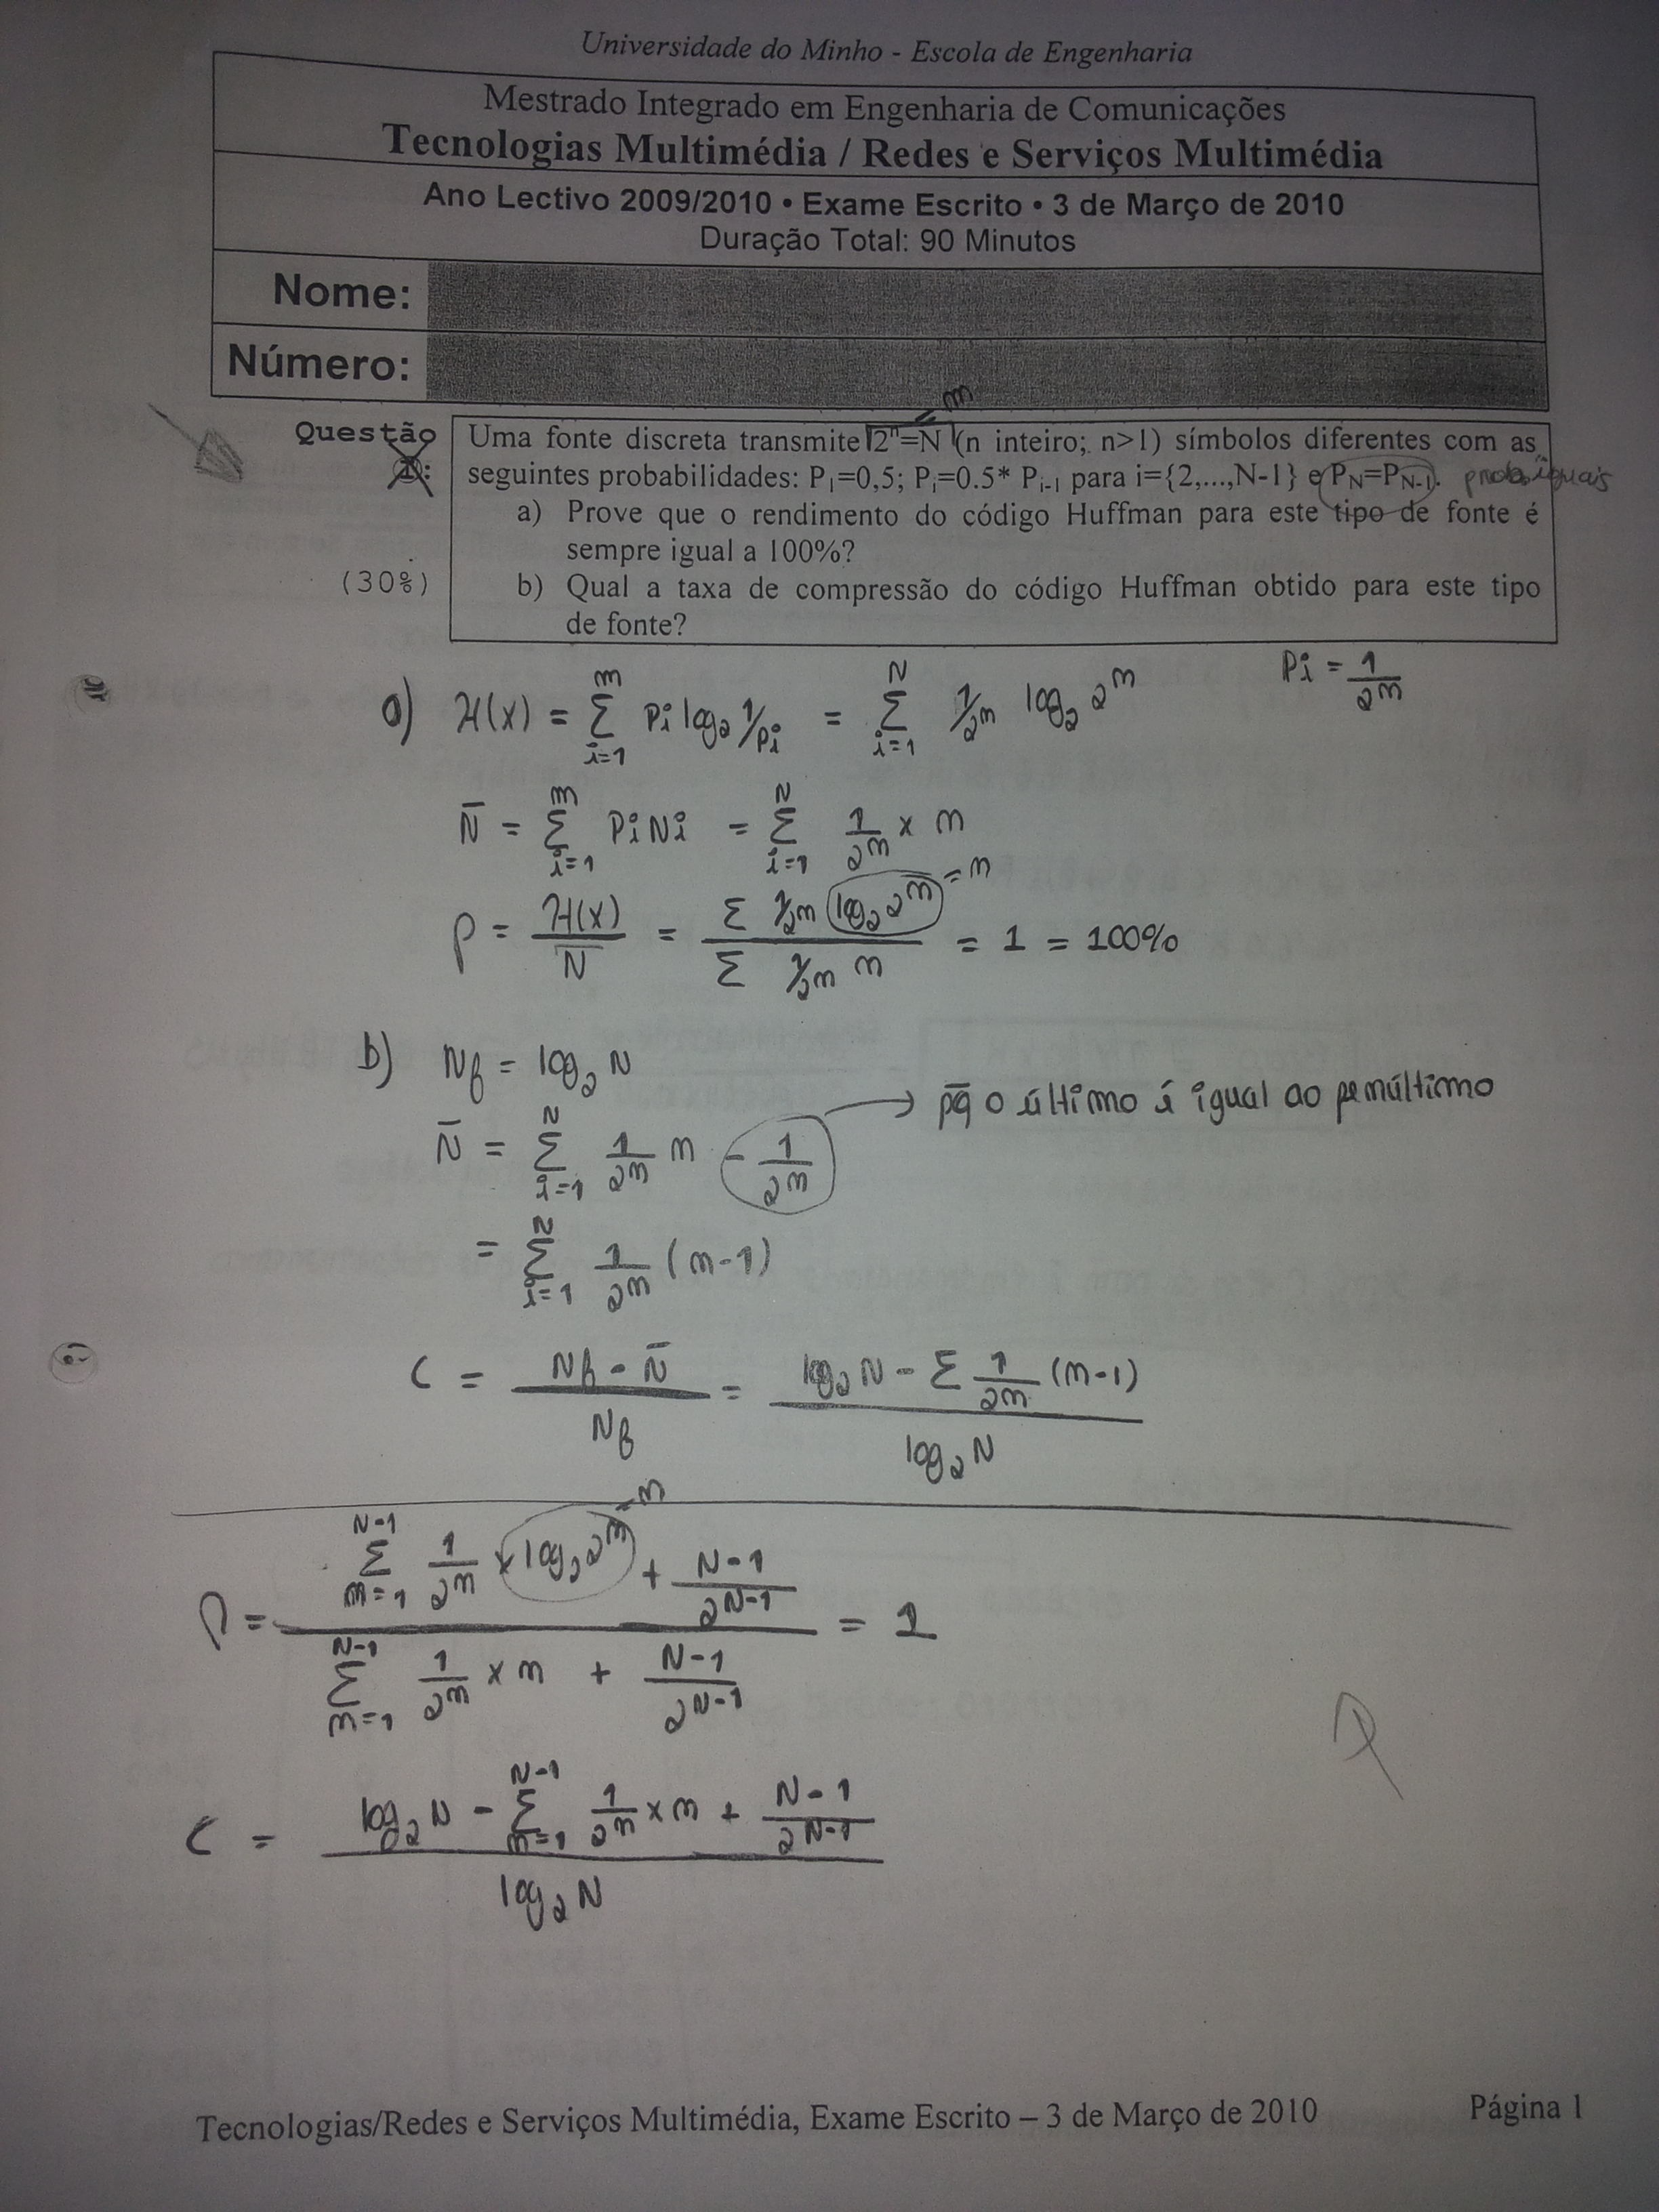 Universidade do Minho - Escola de Engenharia
Mestrado Integrado em Engenharia de Comunicações
Tecnologias Multimédia / Redes e Serviços Multimédia
Ano Lectivo 2009/2010 • Exame Escrito • 3 de Março de 2010
Duração Total: 90 Minutos
Nome:
Número:
= m
Questão
1:
(30%)
Uma fonte discreta transmite 2ⁿ=N (n inteiro; n>1) símbolos diferentes com as
seguintes probabilidades: P₁=0,5; Pᵢ=0.5* Pᵢ₋₁ para i={2,...,N-1} e P_N=P_{N-1}. prob. iguais
a) Prove que o rendimento do código Huffman para este tipo de fonte é
sempre igual a 100%?
b) Qual a taxa de compressão do código Huffman obtido para este tipo
de fonte?
Pi = 1/2^m
a) H(x) = Σ_{i=1}^{m} Pi log₂ 1/Pi = Σ_{i=1}^{N} 1/2^m log₂ 2^m
N̄ = Σ_{i=1}^{m} Pi Ni = Σ_{i=1}^{N} 1/2^m × m
ρ = H(x)/N̄ = Σ 1/2^m log₂ 2^m / Σ 1/2^m m = 1 = 100%
= m
b) Nf = log₂ N
N̄ = Σ_{i=1}^{N} 1/2^m m - 1/2^m → pq o último é igual ao penúltimo
= Σ_{i=1}^{N} 1/2^m (m-1)
C = (Nf - N̄)/Nf = (log₂ N - Σ 1/2^m (m-1))/log₂ N
= m
ρ = (Σ_{m=1}^{N-1} 1/2^m × log₂ 2^m + (N-1)/2^{N-1}) / (Σ_{m=1}^{N-1} 1/2^m × m + (N-1)/2^{N-1}) = 1
C = (log₂ N - Σ_{m=1}^{N-1} 1/2^m × m + (N-1)/2^{N-1}) / log₂ N
Tecnologias/Redes e Serviços Multimédia, Exame Escrito – 3 de Março de 2010
Página 1